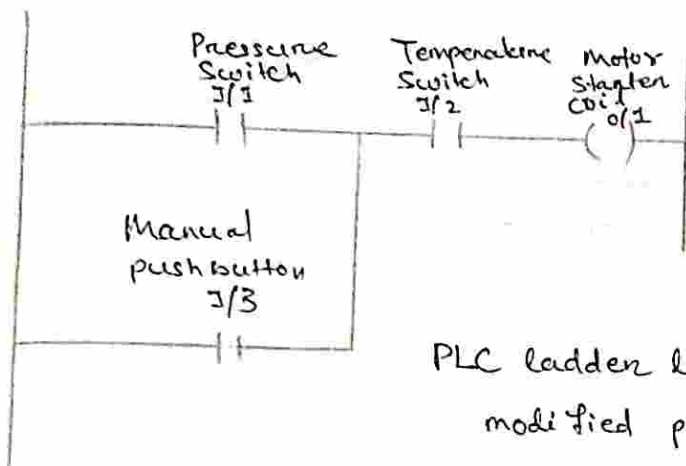 Pressure
Switch
I/1
Temperature
Switch
I/2
Motor
Starter
Coil
O/1
Manual
pushbutton
I/3
PLC ladder l
modified p